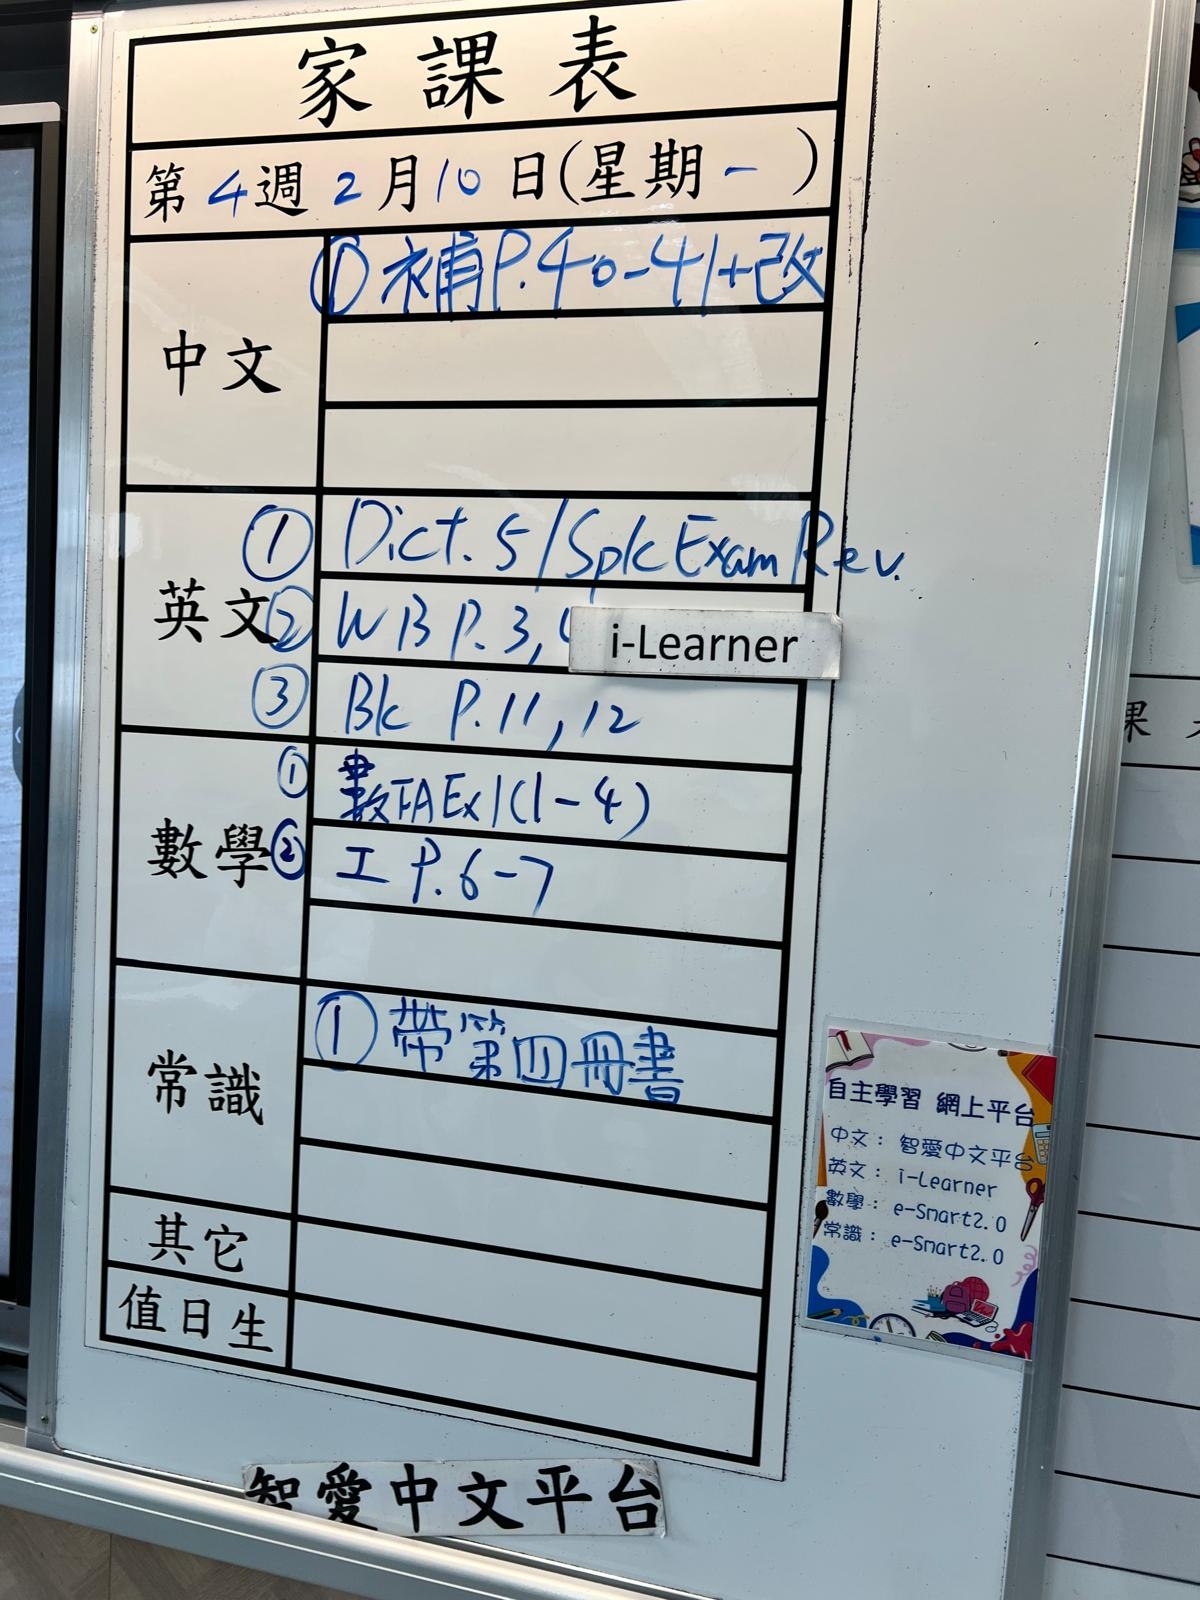 家課表
第4週2月10日(星期一)
中文
① 補P.40-41+改
英文
① Dict. 5/Spk Exam Rev.
② WB P.3,
i-Learner
③ Bk P.11,12
數學
① 數FA Ex1(1-4)
② 工 P.6-7
常識
① 帶第四冊書
其它
值日生
智愛中文平台
自主學習 網上平台
中文： 智愛中文平台
英文： i-Learner
數學： e-Smart2.0
常識： e-Smart2.0
課